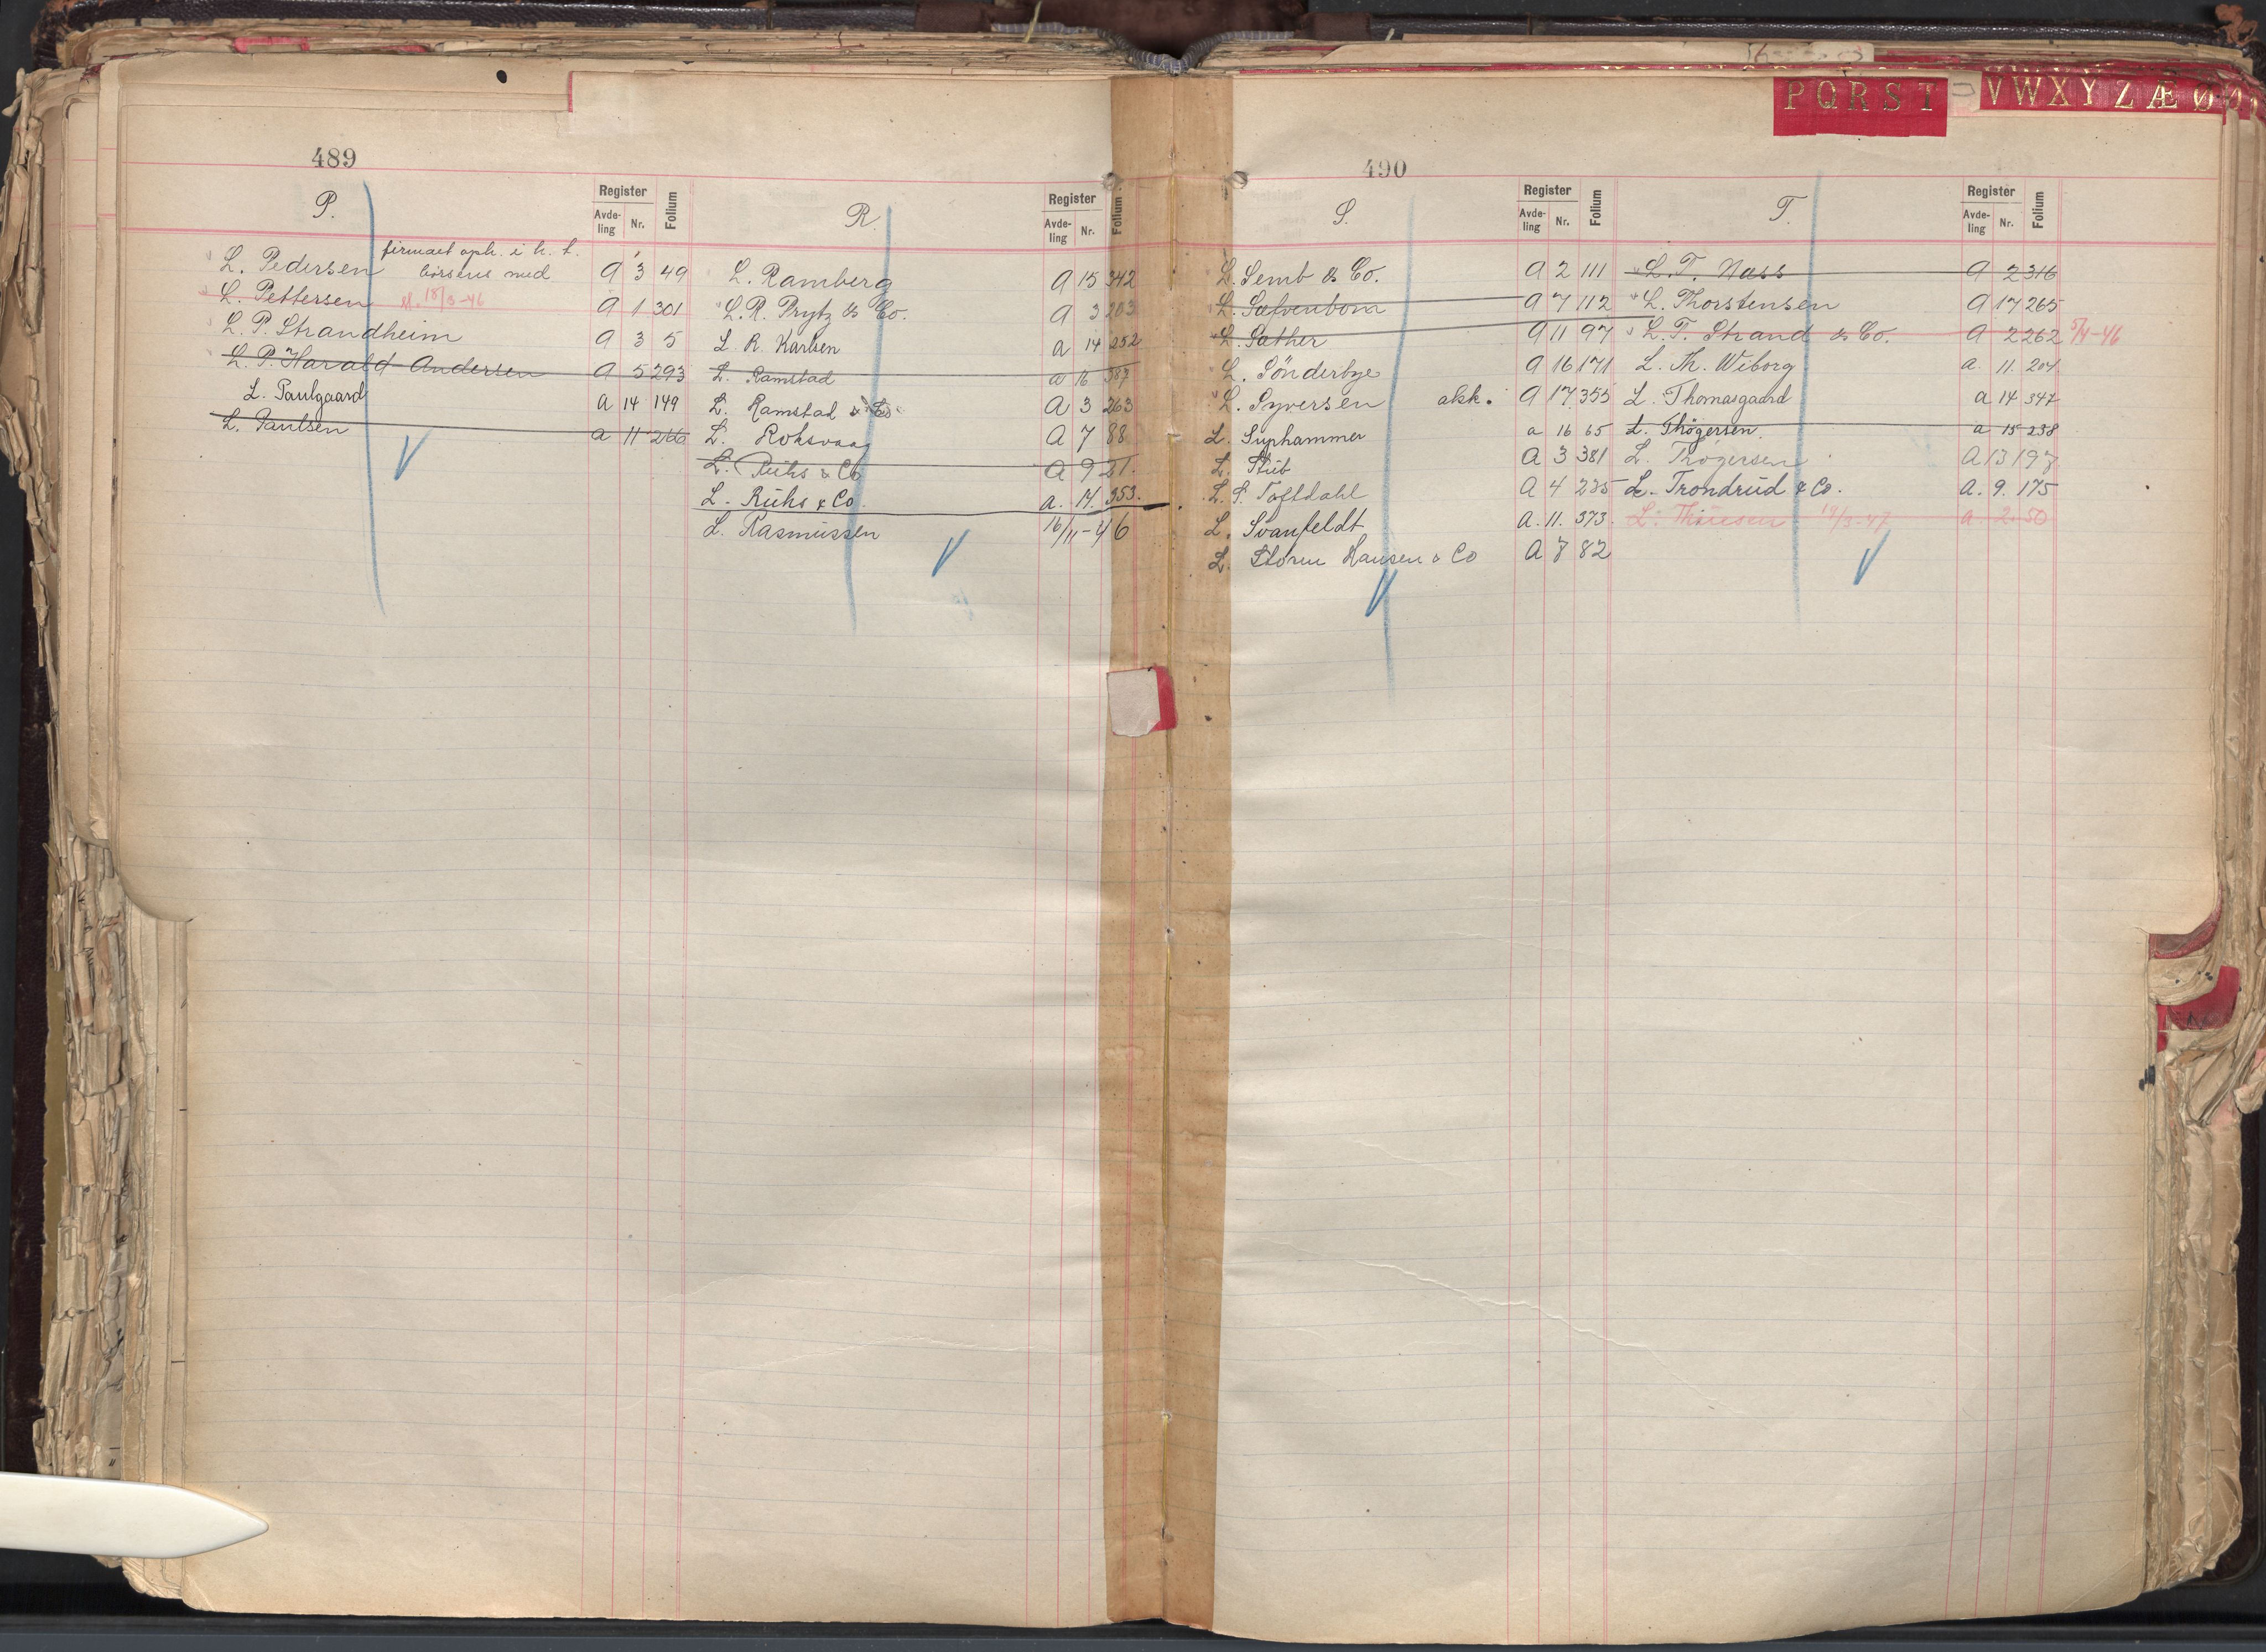 P Q R S T V W X Y Z Æ Ø
489
P.
Register
Avde-
ling
Nr.
Folium
R.
Register
Avde-
ling
Nr.
Folium
firmaet oph. i h. t.
L. Pedersen børsens med A 3 49
L. Pettersen sl. 18/3-46 A 1 301
L. P. Strandheim A 3 5
L. P. Harald Andersen A 5 293
L. Paulgaard A 14 149
L. Paulsen a 11 266
L. Ramberg A 15 342
L. R. Prytz & Co. A 3 203
L. R. Karlsen a 14 252
L. Ramstad a 16 387
L. Ramstad & Co. A 3 263
L. Roksvaag A 7 88
L. Rühs & Co A 9 21.
L. Rühs & Co. a. 17. 353.
L. Rasmussen 16/11-46
490
S.
Register
Avde-
ling
Nr.
Folium
T.
Register
Avde-
ling
Nr.
Folium
L. Semb & Co. A 2 111
L. Sølvenbom A 7 112
L. Sæther A 11 97
L. Sönderbye A 16 171
L. Syversen akk. A 17 355
L. Suphammer a 16 65
L. Stub A 3 381
L. S. Toftdahl A 4 235
L. Svanfeldt A. 11. 373.
L. Storm Hansen & Co A 8 82
L. T. Næss A 2 316
L. Thorstensen A 17 265
L. T. Strand & Co. A 2 262 5/4-46
L. Th. Wiborg a. 11. 204
L. Thomasgaard a 14 347
L. Thøgersen. a 15 238
L. Thøgersen A 13 197
L. Trondrud & Co. A. 9. 175
L. Thuesen 19/3-47 a. 2. 50